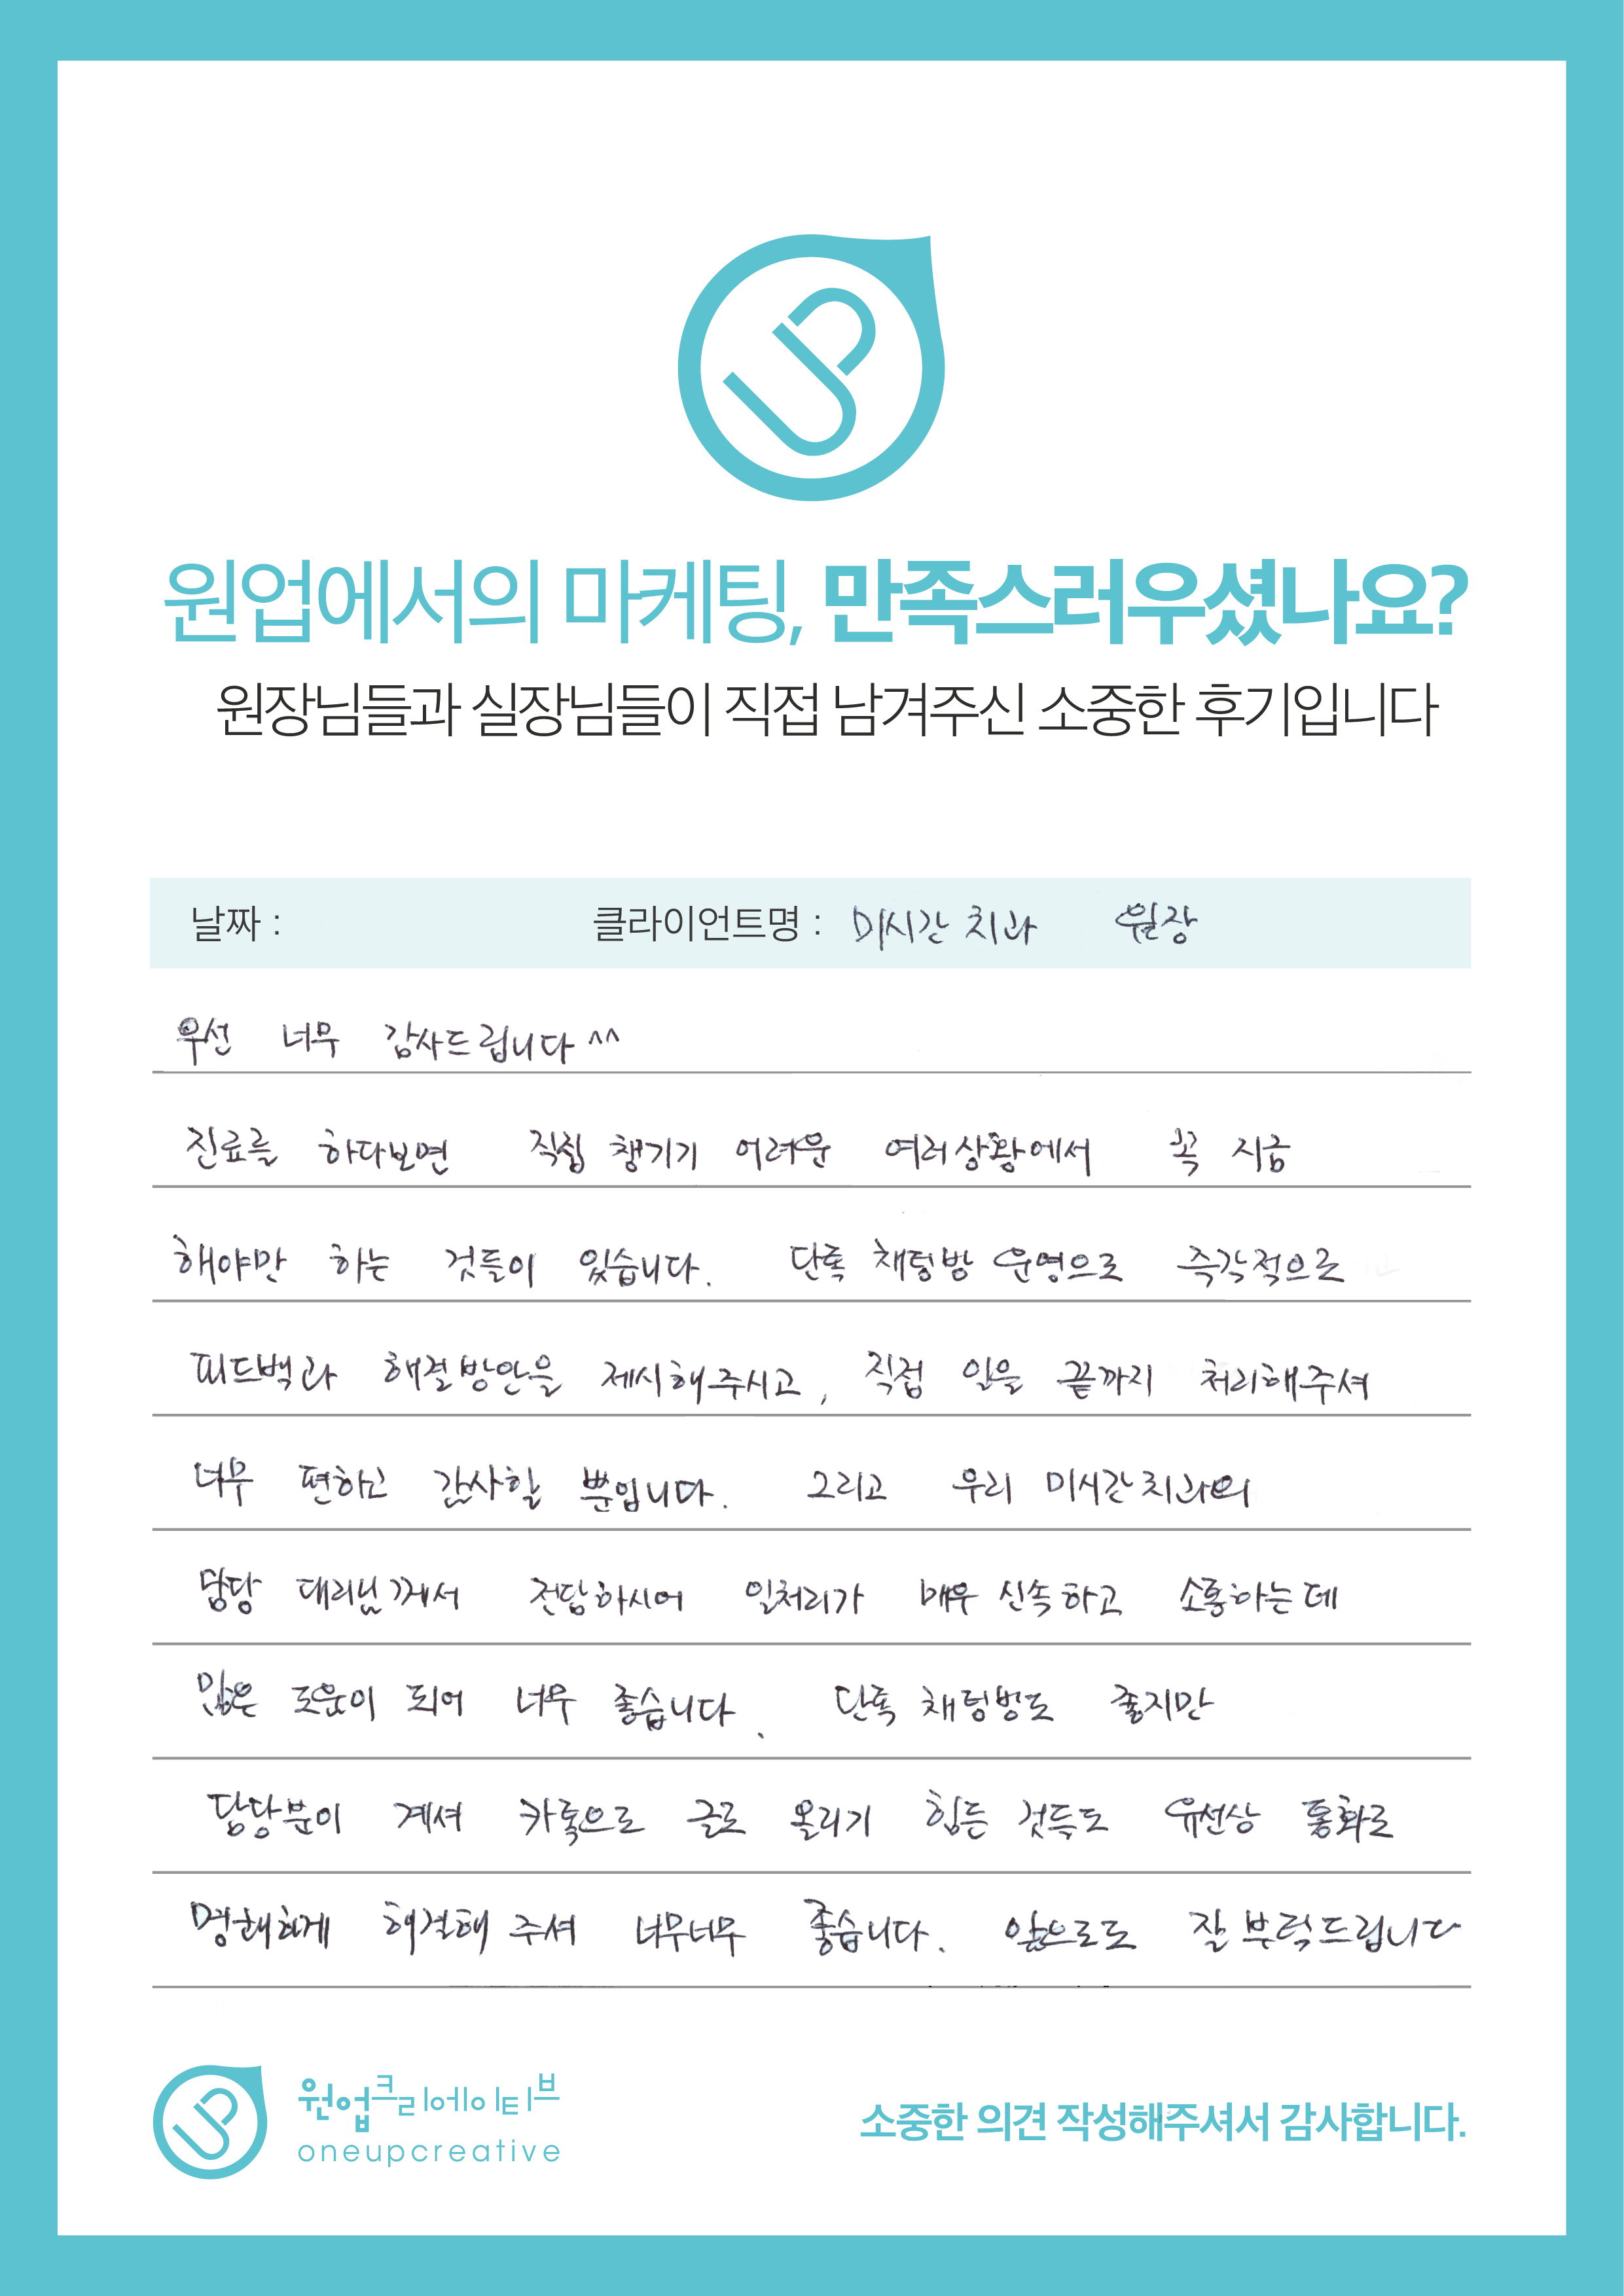 UP
원업에서의 마케팅, 만족스러우셨나요?
원장님들과 실장님들이 직접 남겨주신 소중한 후기입니다
날짜 : 클라이언트명 : 미시간 치과 원장
우선 너무 감사드립니다 ^^
진료를 하다보면 직접 챙기기 어려운 여러상황에서 꼭 지금
해야만 하는 것들이 있습니다. 단톡 채팅방 운영으로 즉각적으로
피드백과 해결방안을 제시해주시고, 직접 일을 끝까지 처리해주셔
너무 편하고 감사할 뿐입니다. 그리고 우리 미시간치과의
담당 대리님께서 전담하시어 일처리가 매우 신속하고 소통하는데
많은 도움이 되어 너무 좋습니다. 단톡 채팅방도 좋지만
담당분이 계셔 카톡으로 글로 올리기 힘든 것들도 유선상 통화로
명쾌하게 해결해 주셔 너무너무 좋습니다. 앞으로도 잘 부탁드립니다
UP 원업크리에이티브
oneupcreative
소중한 의견 작성해주셔서 감사합니다.